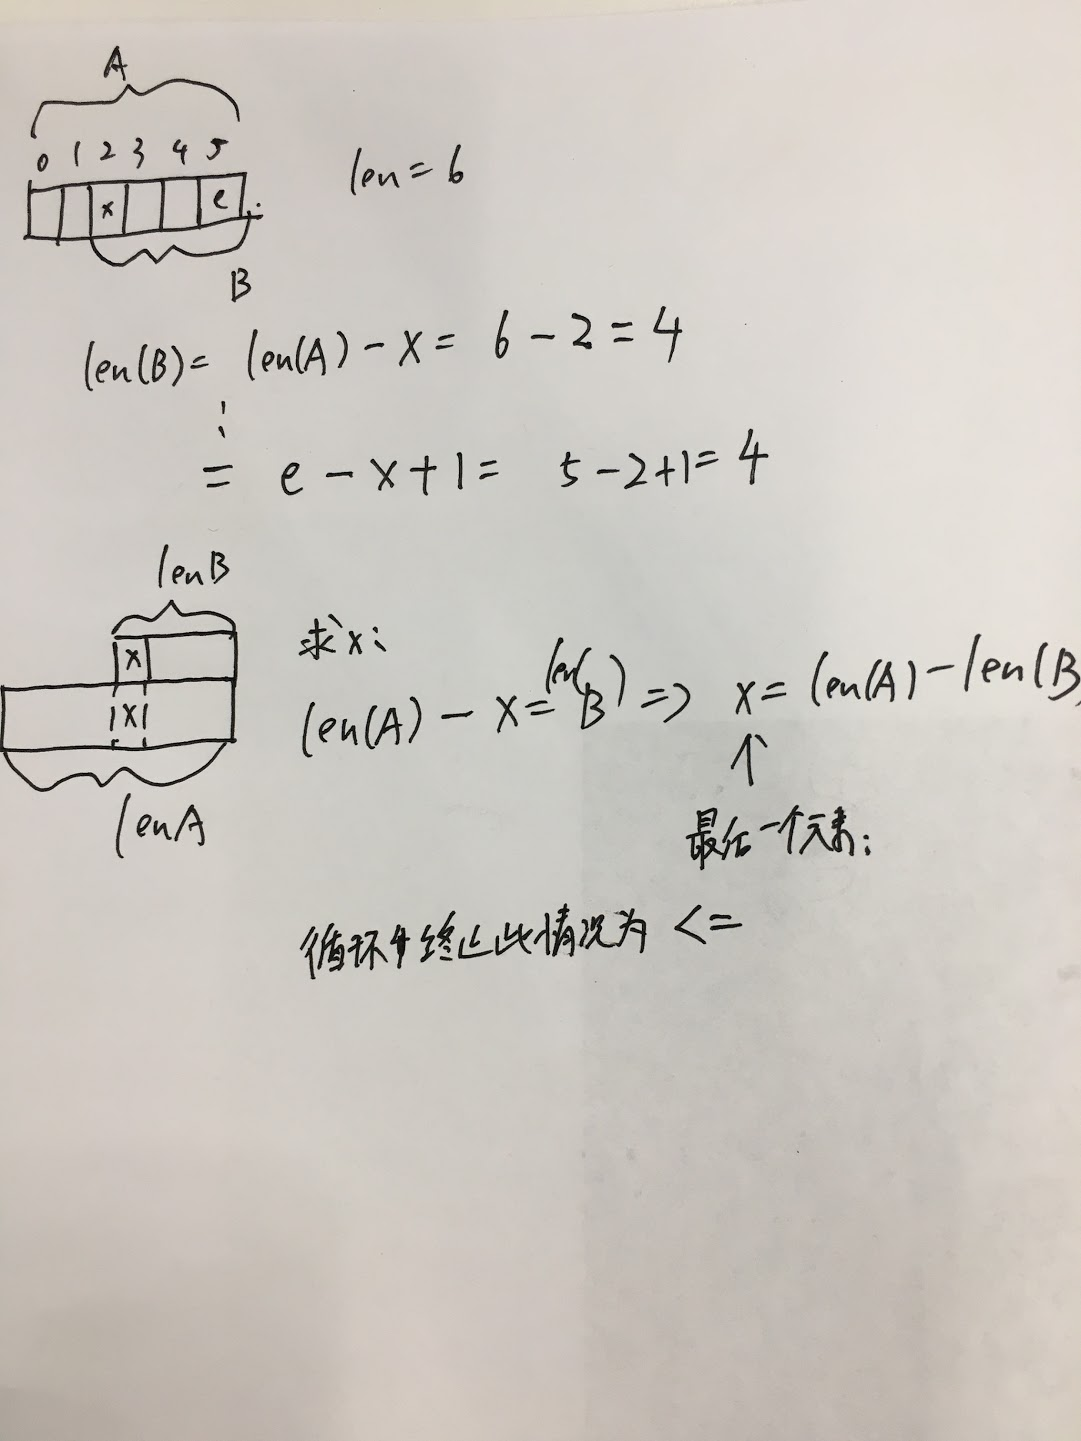 A
0 1 2 3 4 5
x e
len = 6
B
len(B) = len(A) - x = 6 - 2 = 4
= e - x + 1 = 5 - 2 + 1 = 4
lenB
x
求x:
len(A) - x = len(B) => x = len(A) - len(B
x
lenA
最后一个元素:
循环终止此情况为 <=